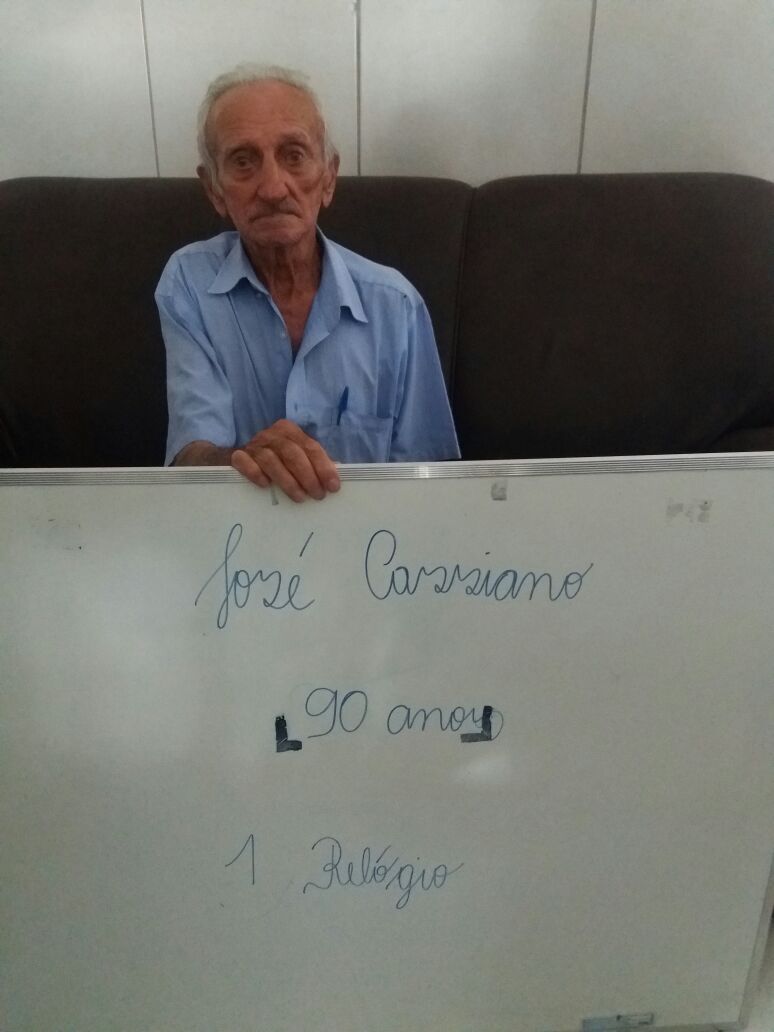 José Cassiano
90 anos
1 Relógio